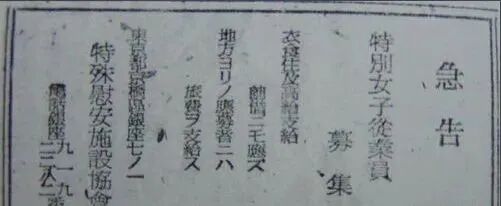 急告
特別女子從業員
募集
衣食住及高給支給
前借ニモ應ズ
地方ヨリノ應募者ニハ
旅費ヲ支給ス
東京都京橋區銀座七ノ一
特殊慰安施設協會
電話銀座